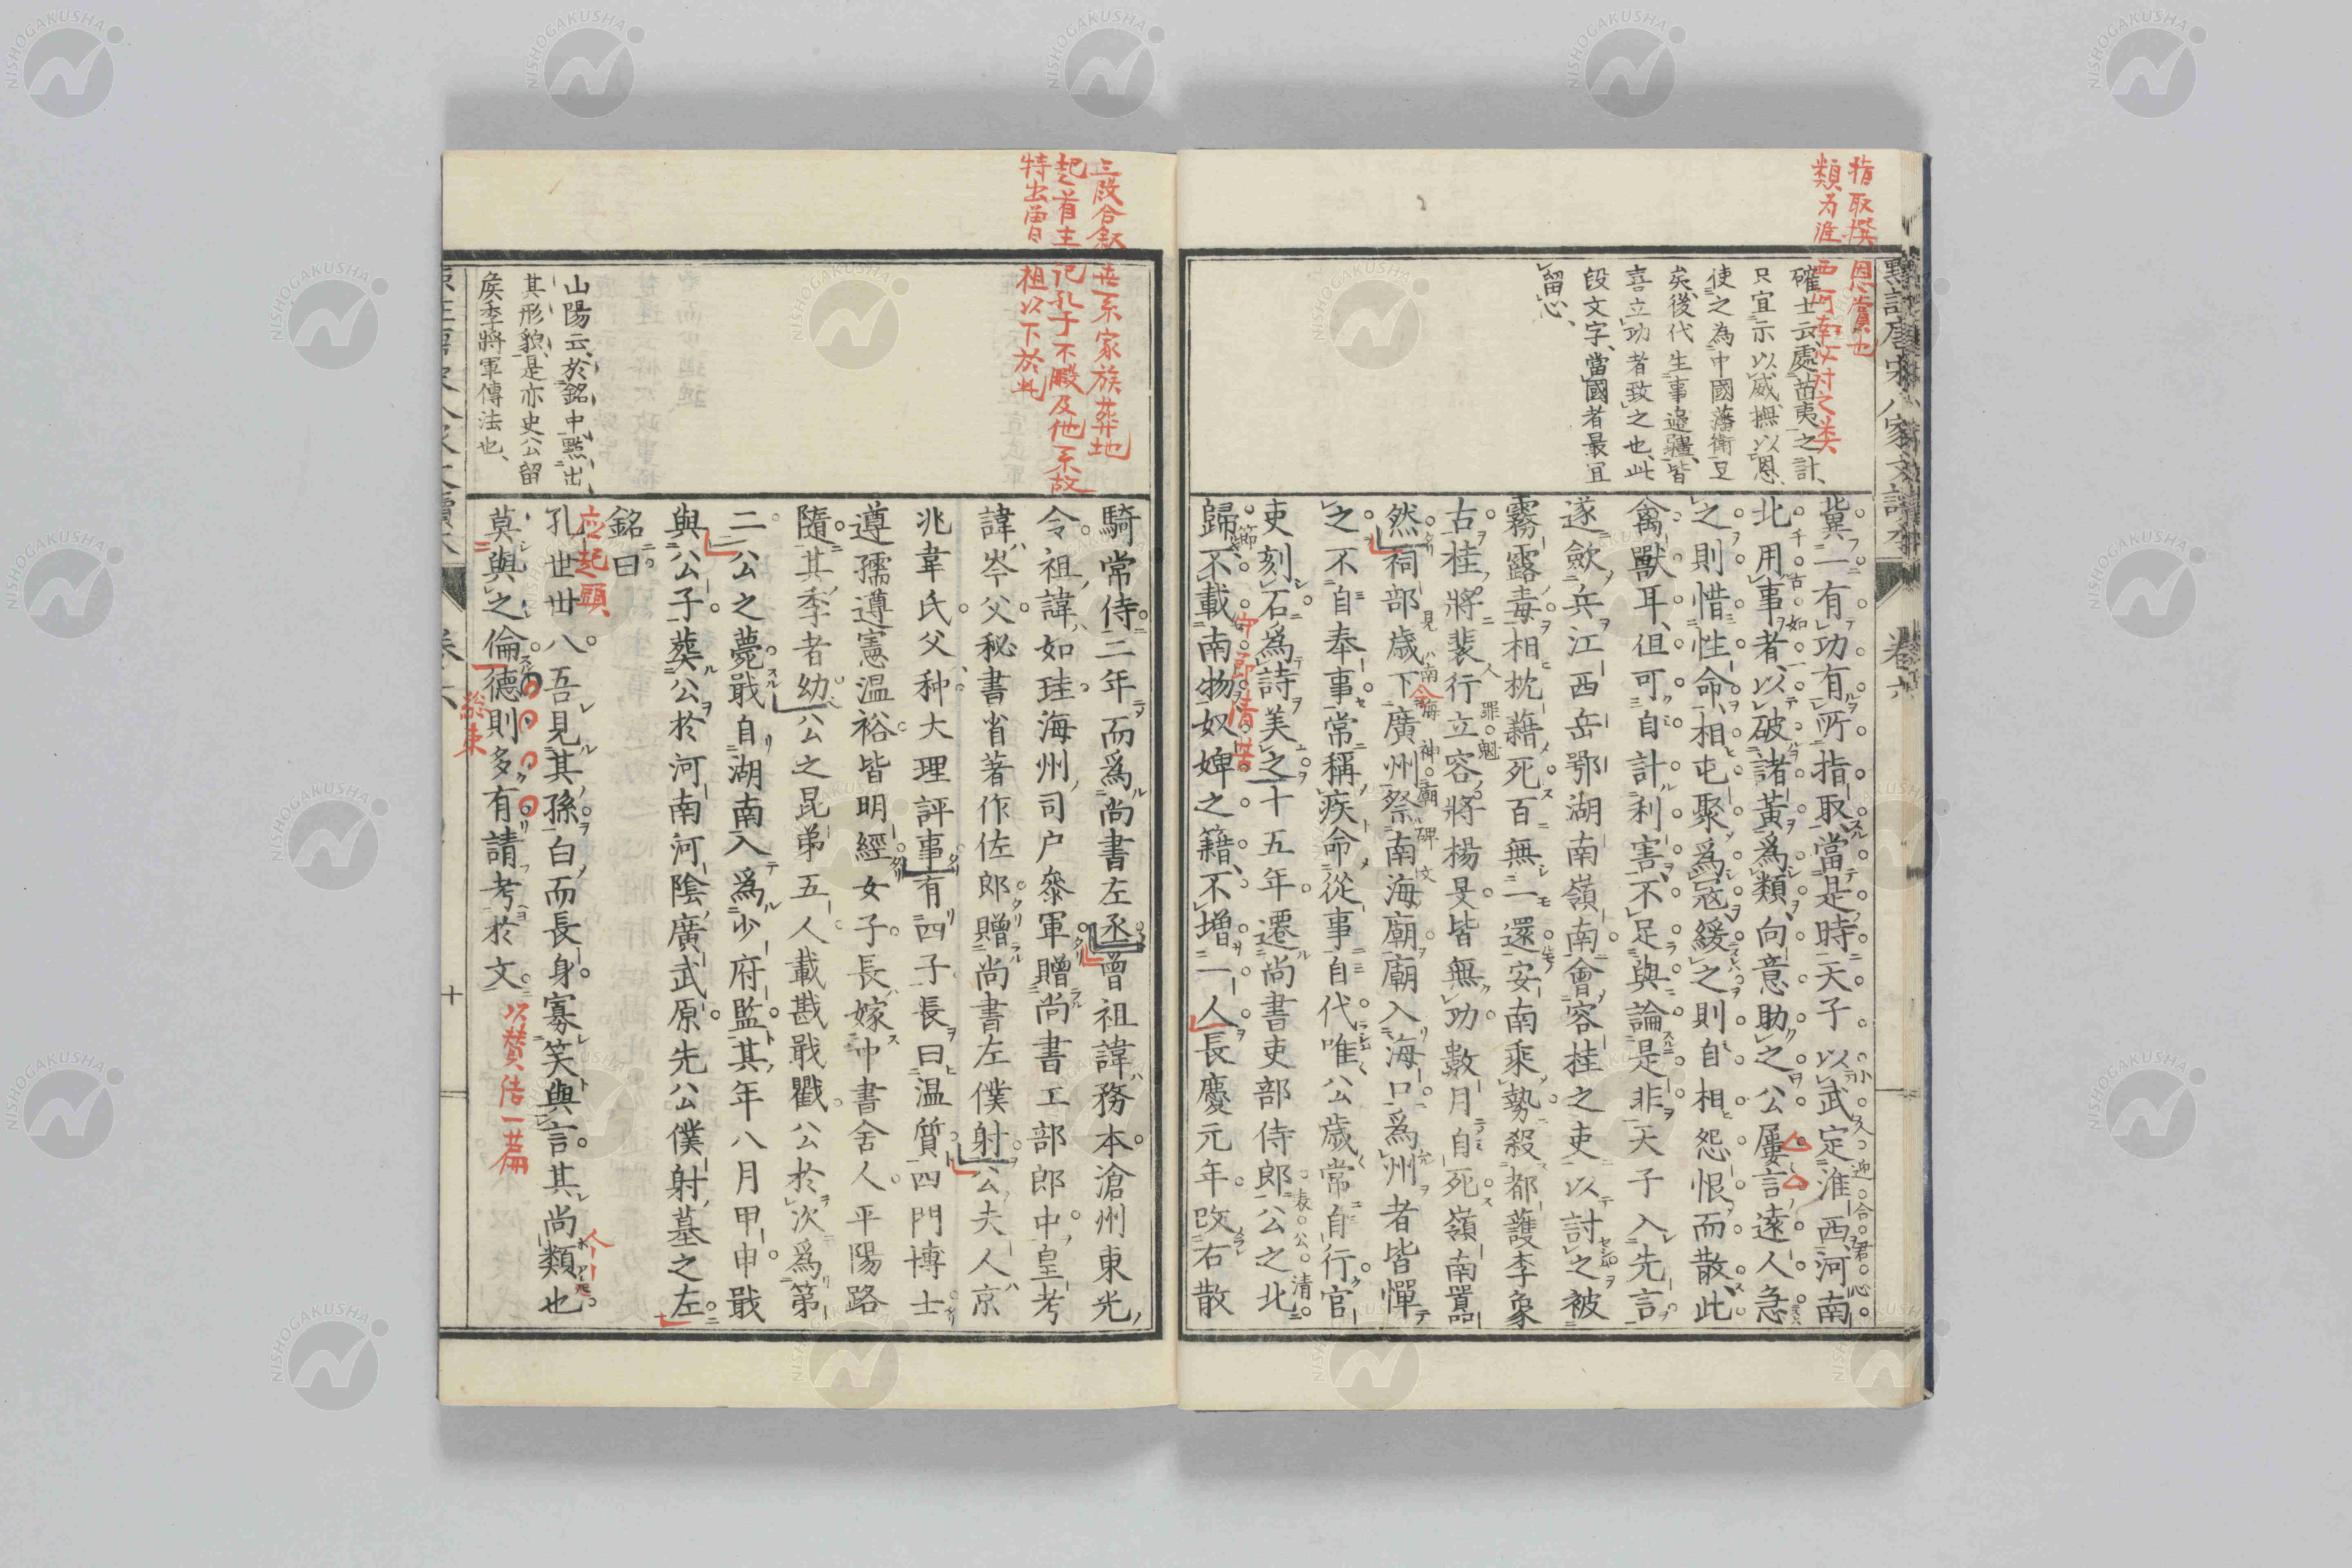 冀一有功有所指取當是時天子以武定淮西河南
北用事者以破諸黃爲類向意助之公屢言遠人急
之則惜性命相屯聚爲寇緩之則自相怨恨而散此
禽獸耳但可自計利害不足與論是非天子入先言
遂斂兵江西岳鄂湖南嶺南會容桂之吏以討之被
霧露毒相枕藉死百無一還安南乘勢殺都護李象
古桂將裴行立容將楊旻皆無功數月自死嶺南囂
然祠部歲下廣州祭南海廟廟入海口爲州者皆憚
之不自奉事常稱疾命從事自代唯公歲常自行官
吏刻石爲詩美之十五年遷尚書吏部侍郎公之北
歸不載南物奴婢之籍不增一人長慶元年改右散
確士云處苗夷之計
只宜示以威撫以恩
使之為中國藩衛足
矣後代生事邊疆皆
喜立功者致之也此
段文字當國者最宜
留心
指取撰恩賞也
類为淮西河南以討之类
卷六
騎常侍二年而爲尚書左丞曾祖諱務本滄州東光
令祖諱如珪海州司户參軍贈尚書工部郎中皇考
諱岑父秘書省著作佐郎贈尚書左僕射公夫人京
兆韋氏父种大理評事有四子長曰温質四門博士
遵孺遵憲温裕皆明經女子長嫁中書舍人平陽路
隨其季者幼公之昆弟五人載戡戢戵公於次爲第
二公之薨戢自湖南入爲少府監其年八月甲申戢
與公子葬公於河南河陰廣武原先公僕射墓之左
銘曰
孔世卅八吾見其孫白而長身寡笑與言其尚類也
莫與之倫德則多有請考於文
三段合叙世系家族葬地
起首主记孔子不暇及他系故
特出曾祖以下於此
山陽云於銘中點出
其形貌是亦史公留
矦季將軍傳法也
应起頭
以贊结一篇
十